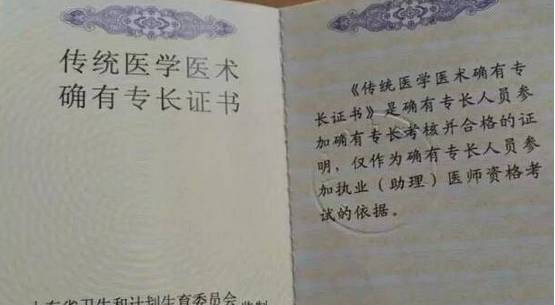 传统医学医术
确有专长证书
山东省卫生和计划生育委员会 监制
《传统医学医术确有专
长证书》是确有专长人员参
加确有专长考核并合格的证
明，仅作为确有专长人员参
加执业（助理）医师资格考
试的依据。